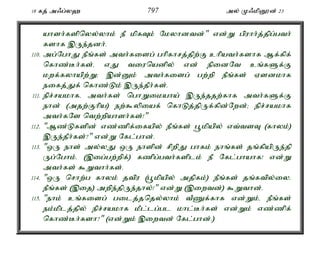 18 கத் அஃப்லஹ 797 அல் முஃமினூன் 23
யாளர்களிலெல்லாம் நீ மிகவும் மேலானவன்" என்று பிரார்த்திப்பவர்களாக இருந்தனர்.
110. அப்போது நீங்கள் அவர்களைப் பரிகாசத்திற்கு உரியவர்களாக ஆக்கிக் கொண்டீர்கள், எது வரையெனில் என் நினைவே உங்களுக்கு மறக்கலாயிற்று; இன்னும் அவர்களைப் பற்றி நீங்கள் ஏளனமாக நகைத்துக் கொண்டும் இருந்தீர்கள்.
111. நிச்சயமாக, அவர்கள் பொறுமையாய் இருந்ததற்காக அவர்களுக்கு நான் (அதற்குரிய) நற்கூலியைக் கொடுத்திருக்கின்றேன்; நிச்சயமாக அவர்களே வெற்றியாளர்கள்!"
112. "ஆண்டுகளின் எண்ணிக்கையில் நீங்கள் பூமியில் எவ்வளவு (காலம்) இருந்தீர்கள்?" என்று கேட்பான்.
113. "ஒரு நாள் அல்லது ஒரு நாளின் சிறிது பாகம் நாங்கள் தங்கியிருந்திருப்போம். (இதைப்பற்றிக்) கணிப்பவர்களிடம் நீ கேட்பாயாக! என்று அவர்கள் கூறுவார்கள்.
114. "ஒரு சொற்ப காலம் தவிர (பூமியில் அதிகம்) நீங்கள் தங்கவில்லை. நீங்கள் (இதை) அறிந்திருந்தால்!" என்று (இறைவன்) கூறுவான்.
115. "நாம் உங்களைப் படைத்ததெல்லாம் வீணுக்காக என்றும், நீங்கள் நம்மிடத்தில் நிச்சயமாக மீட்டப்பட மாட்டீர்கள் என்றும் எண்ணிக் கொண்டீர்களா?" (என்றும் இறைவன் கேட்பான்.)